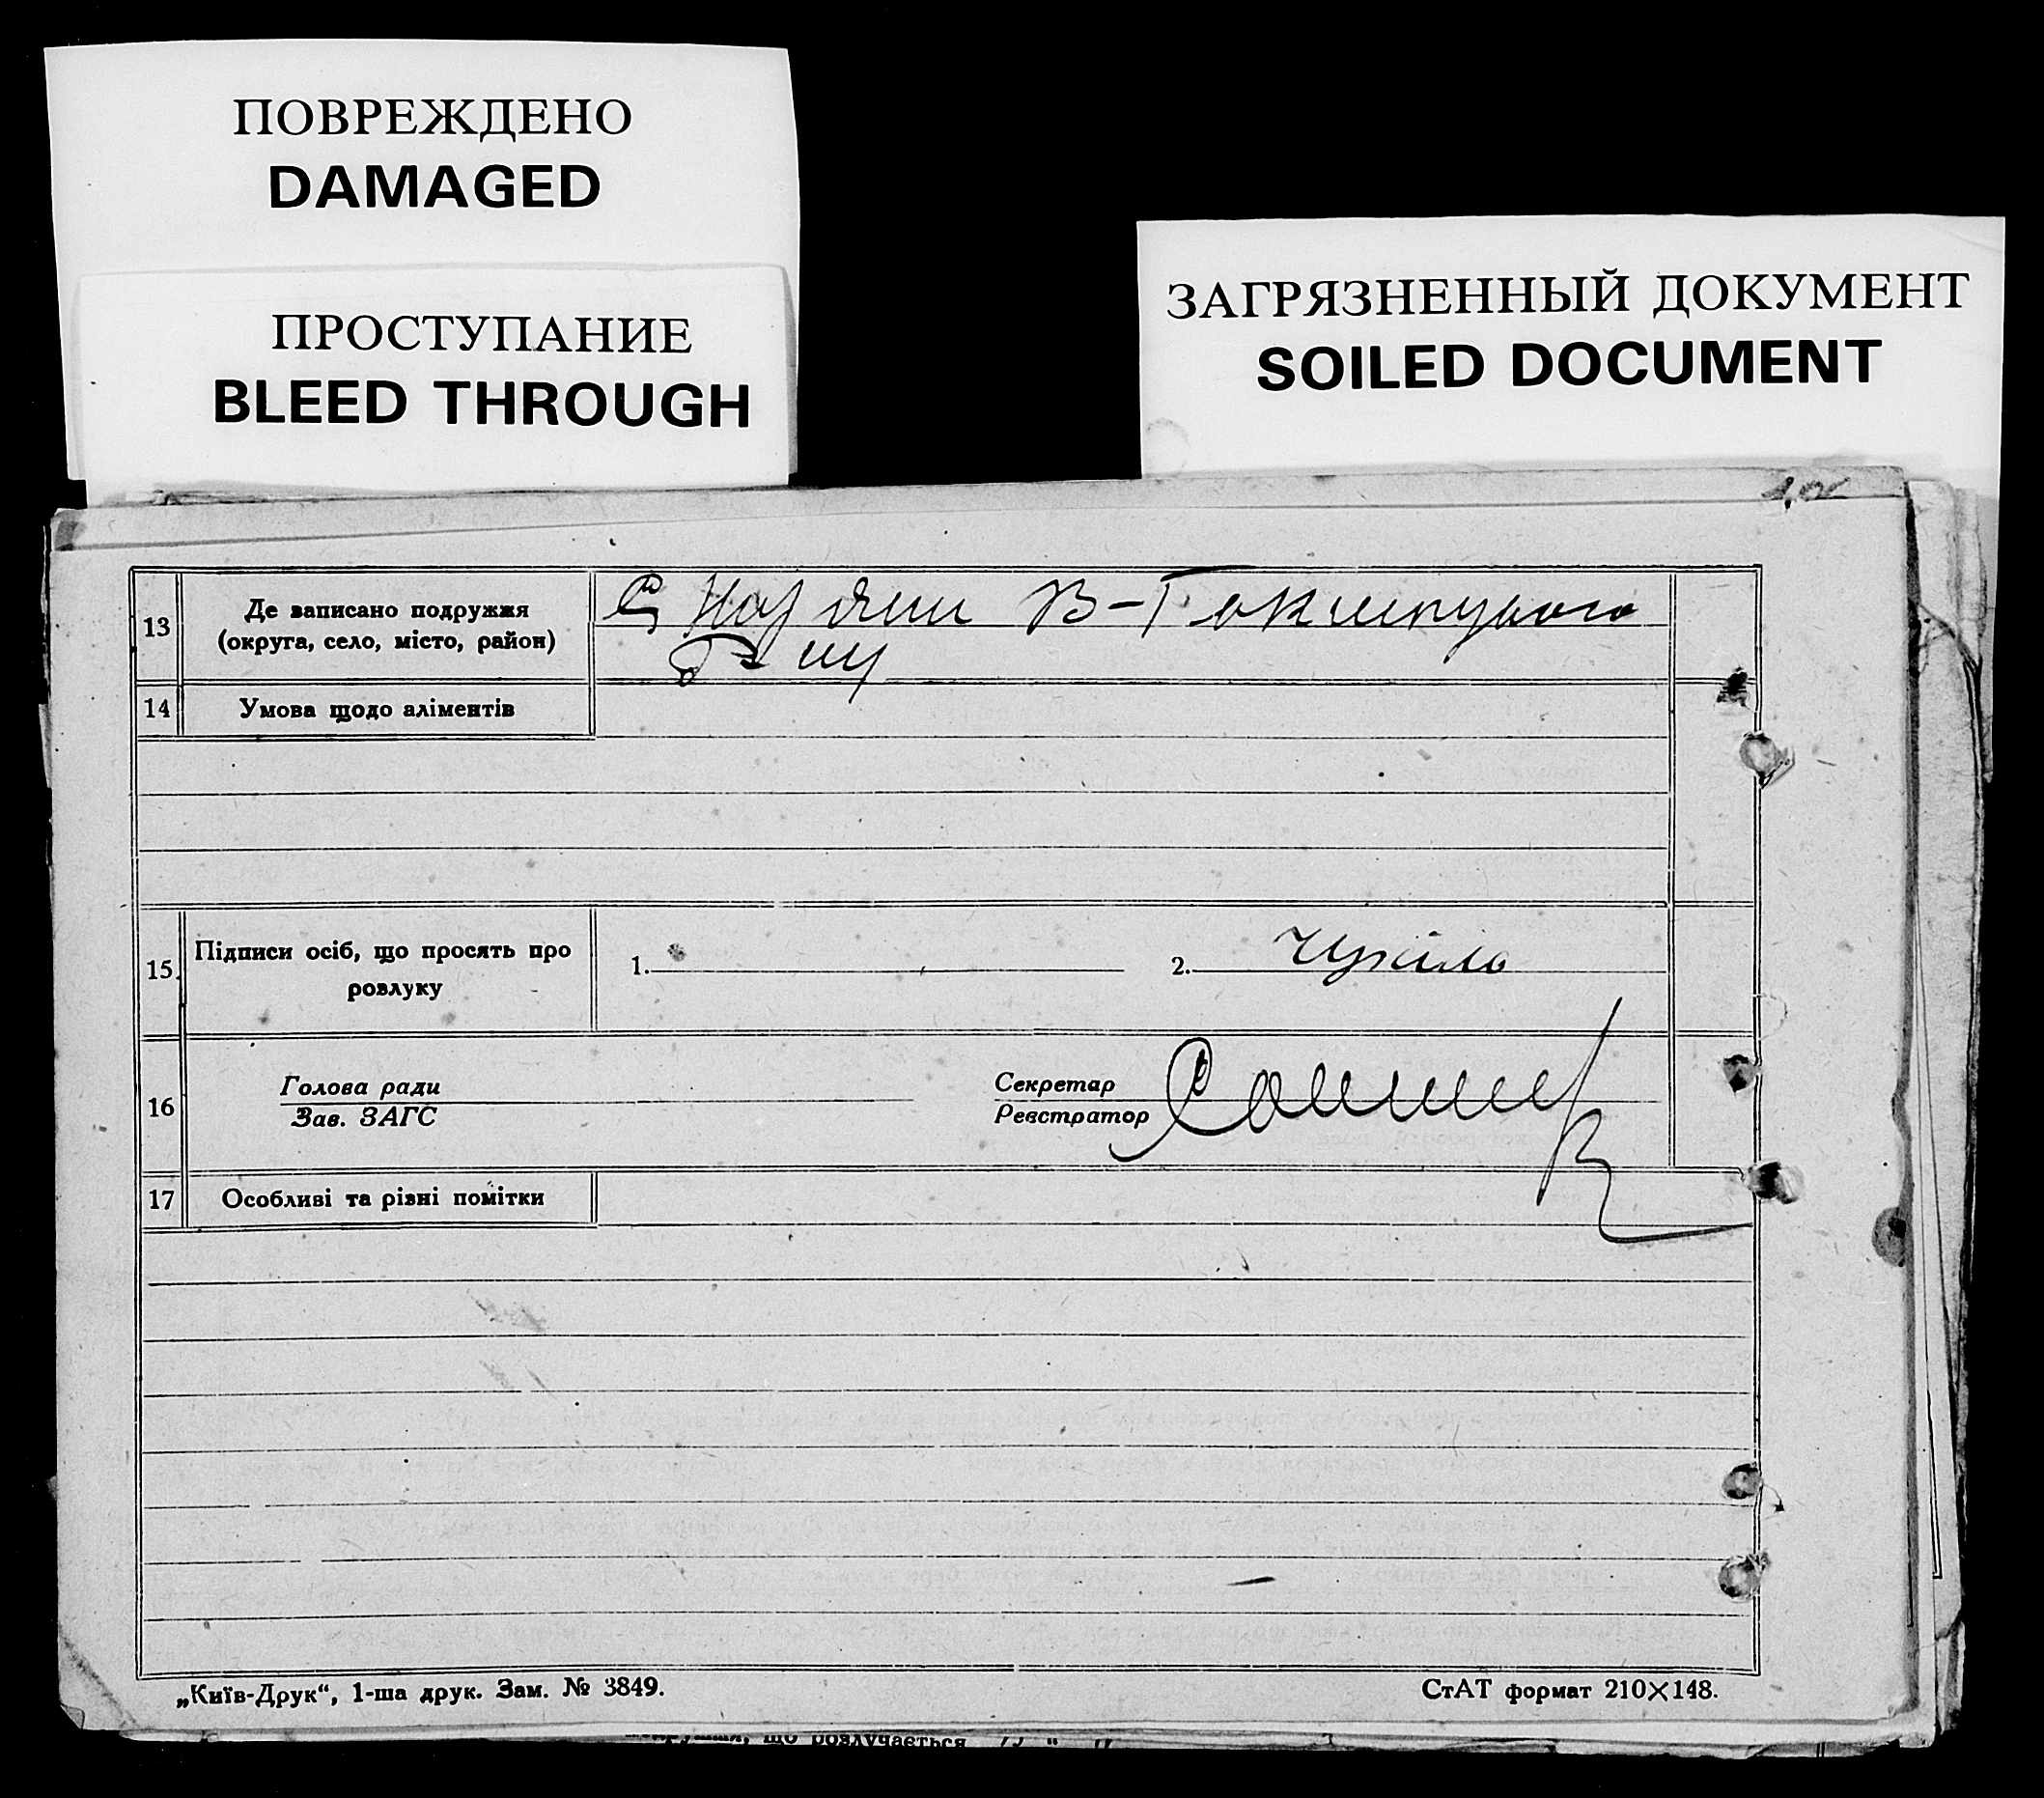 ПОВРЕЖДЕНО
DAMAGED
ПРОСТУПАНИЕ
BLEED THROUGH
ЗАГРЯЗНЕННЫЙ ДОКУМЕНТ
SOILED DOCUMENT
13
Де записано подружжя
(округа, село, місто, район)
14
Умова щодо аліментів
15.
Підписи осіб, що просять про
розлуку
1.
2.
16
Голова ради
Зав. ЗАГС
Секретар
Реєстратор
17
Особливі та різні помітки
„Київ-Друк“, 1-ша друк. Зам. № 3849.
СтАТ формат 210×148.
що розлучається